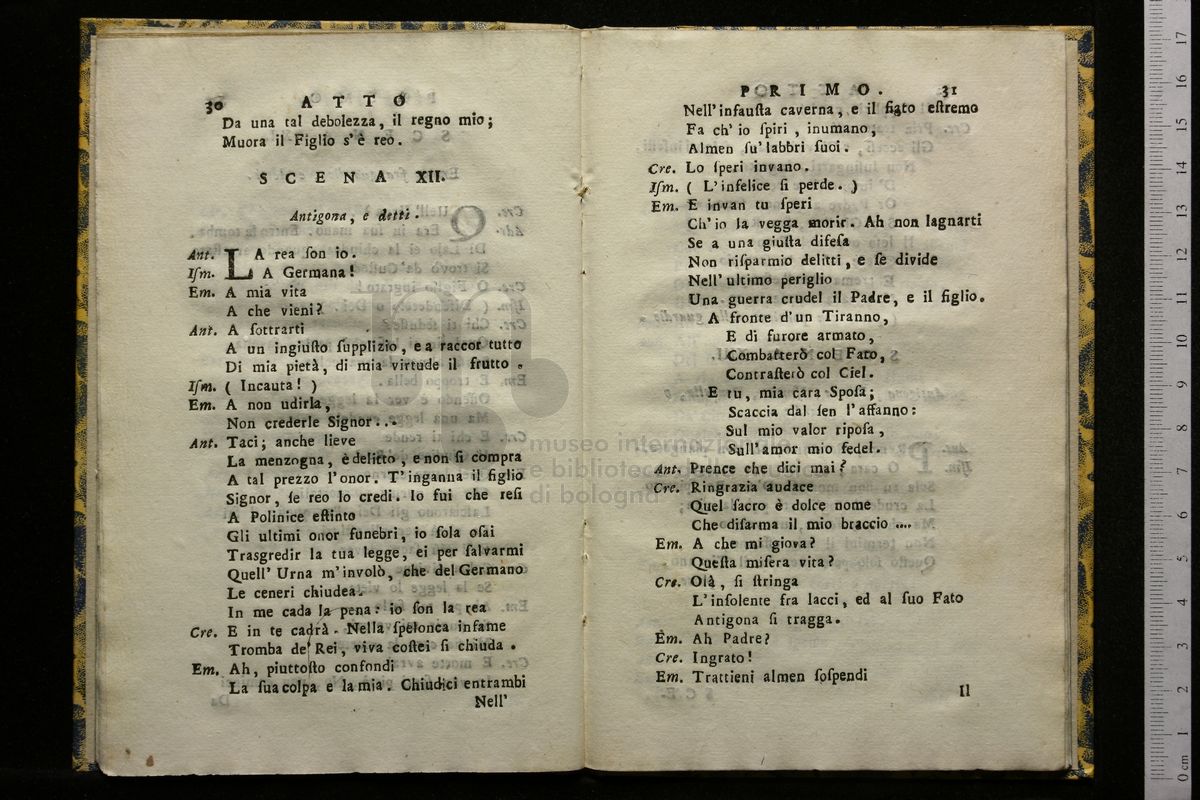 30 ATTO
Da una tal debolezza, il regno mio;
Muora il Figlio s'è reo.
SCENA XII.
Antigona, e detti.
Ant. LA rea ſon io.
Iſm. A Germana!
Em. A mia vita
A che vieni?
Ant. A ſottrarti
A un ingiuſto ſupplizio, e a raccor tutto
Di mia pietà, di mia virtude il frutto.
Iſm. ( Incauta! )
Em. A non udirla,
Non crederle Signor...
Ant. Taci; anche lieve
La menzogna, è delitto, e non ſi compra
A tal prezzo l'onor. T'inganna il figlio
Signor, ſe reo lo credi. Io fui che reſi
A Polinice eſtinto
Gli ultimi onor funebri, io ſola oſai
Trasgredir la tua legge, ei per ſalvarmi
Quell' Urna m'involò, che del Germano
Le ceneri chiudea.
In me cada la pena: io ſon la rea
Cre. E in te cadrà. Nella ſpelonca infame
Tromba de' Rei, viva coſtei ſi chiuda.
Em. Ah, piuttoſto confondi
La ſua colpa e la mia. Chiudici entrambi
Nell'
PRIMO. 31
Nell'infauſta caverna, e il fiato eſtremo
Fa ch' io ſpiri, inumano,
Almen ſu' labbri ſuoi.
Cre. Lo ſperi invano.
Iſm. ( L'infelice ſi perde. )
Em. E invan tu ſperi
Ch'io la vegga morir. Ah non lagnarti
Se a una giuſta difeſa
Non riſparmio delitti, e ſe divide
Nell' ultimo periglio
Una guerra crudel il Padre, e il figlio.
A fronte d'un Tiranno,
E di furore armato,
Combatterò col Fato,
Contraſterò col Ciel.
E tu, mia cara Spoſa;
Scaccia dal ſen l'affanno:
Sul mio valor ripoſa,
Sull'amor mio fedel.
Ant. Prence che dici mai?
Cre. Ringrazia audace
Quel ſacro è dolce nome
Che diſarma il mio braccio ....
Em. A che mi giova?
Queſta miſera vita?
Cre. Olà, ſi ſtringa
L'inſolente fra lacci, ed al ſuo Fato
Antigona ſi tragga.
Em. Ah Padre?
Cre. Ingrato!
Em. Trattieni almen ſoſpendi
Il
museo internazionale
e biblioteca della musica
di bologna
0 cm 1 2 3 4 5 6 7 8 9 10 11 12 13 14 15 16 17